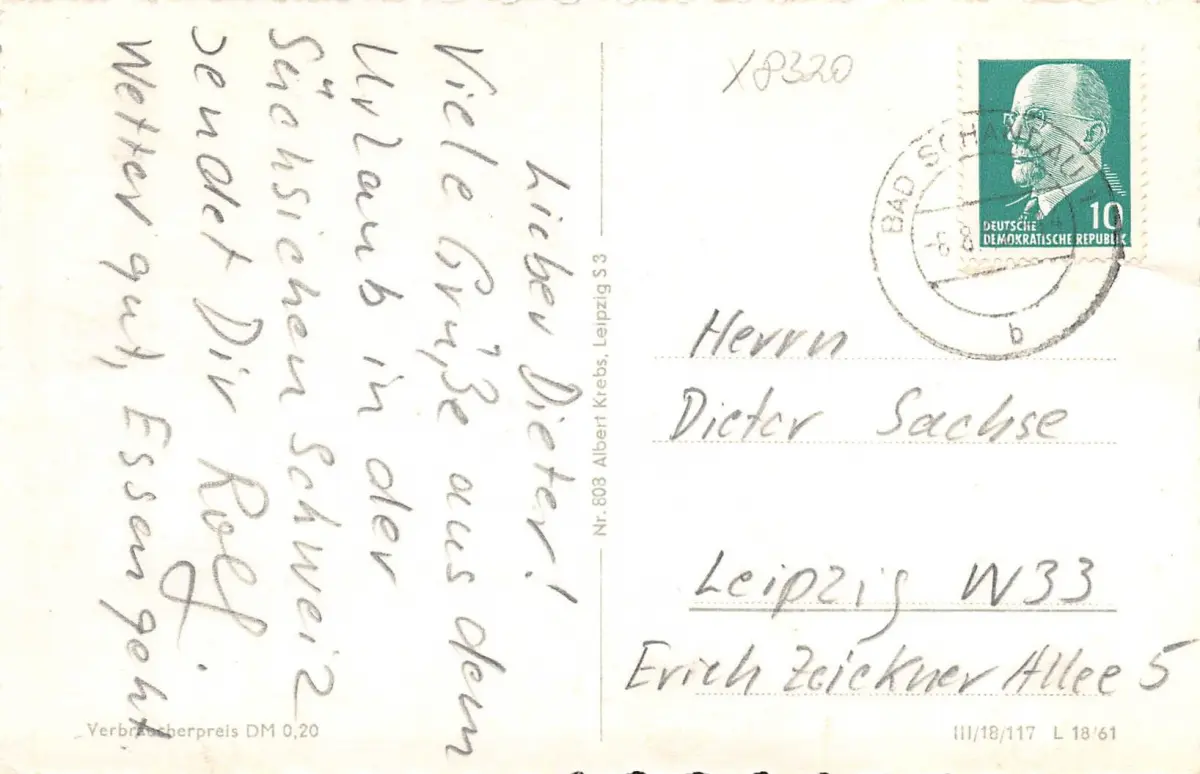 Lieber Dieter!
Viele Grüße aus dem
Urlaub in der
Sächsichen Schweiz
sendet Dir Rolf.
Wetter gut, Essen geht
Verbraucherpreis DM 0,20
Nr. 808 Albert Krebs, Leipzig S 3
X8320
BAD SCHANDAU
-6.8.
b
10
DEUTSCHE
DEMOKRATISCHE REPUBLIK
Herrn
Dieter Sachse
Leipzig W33
Erich Zeickner Allee 5
III/18/117 L 18/61